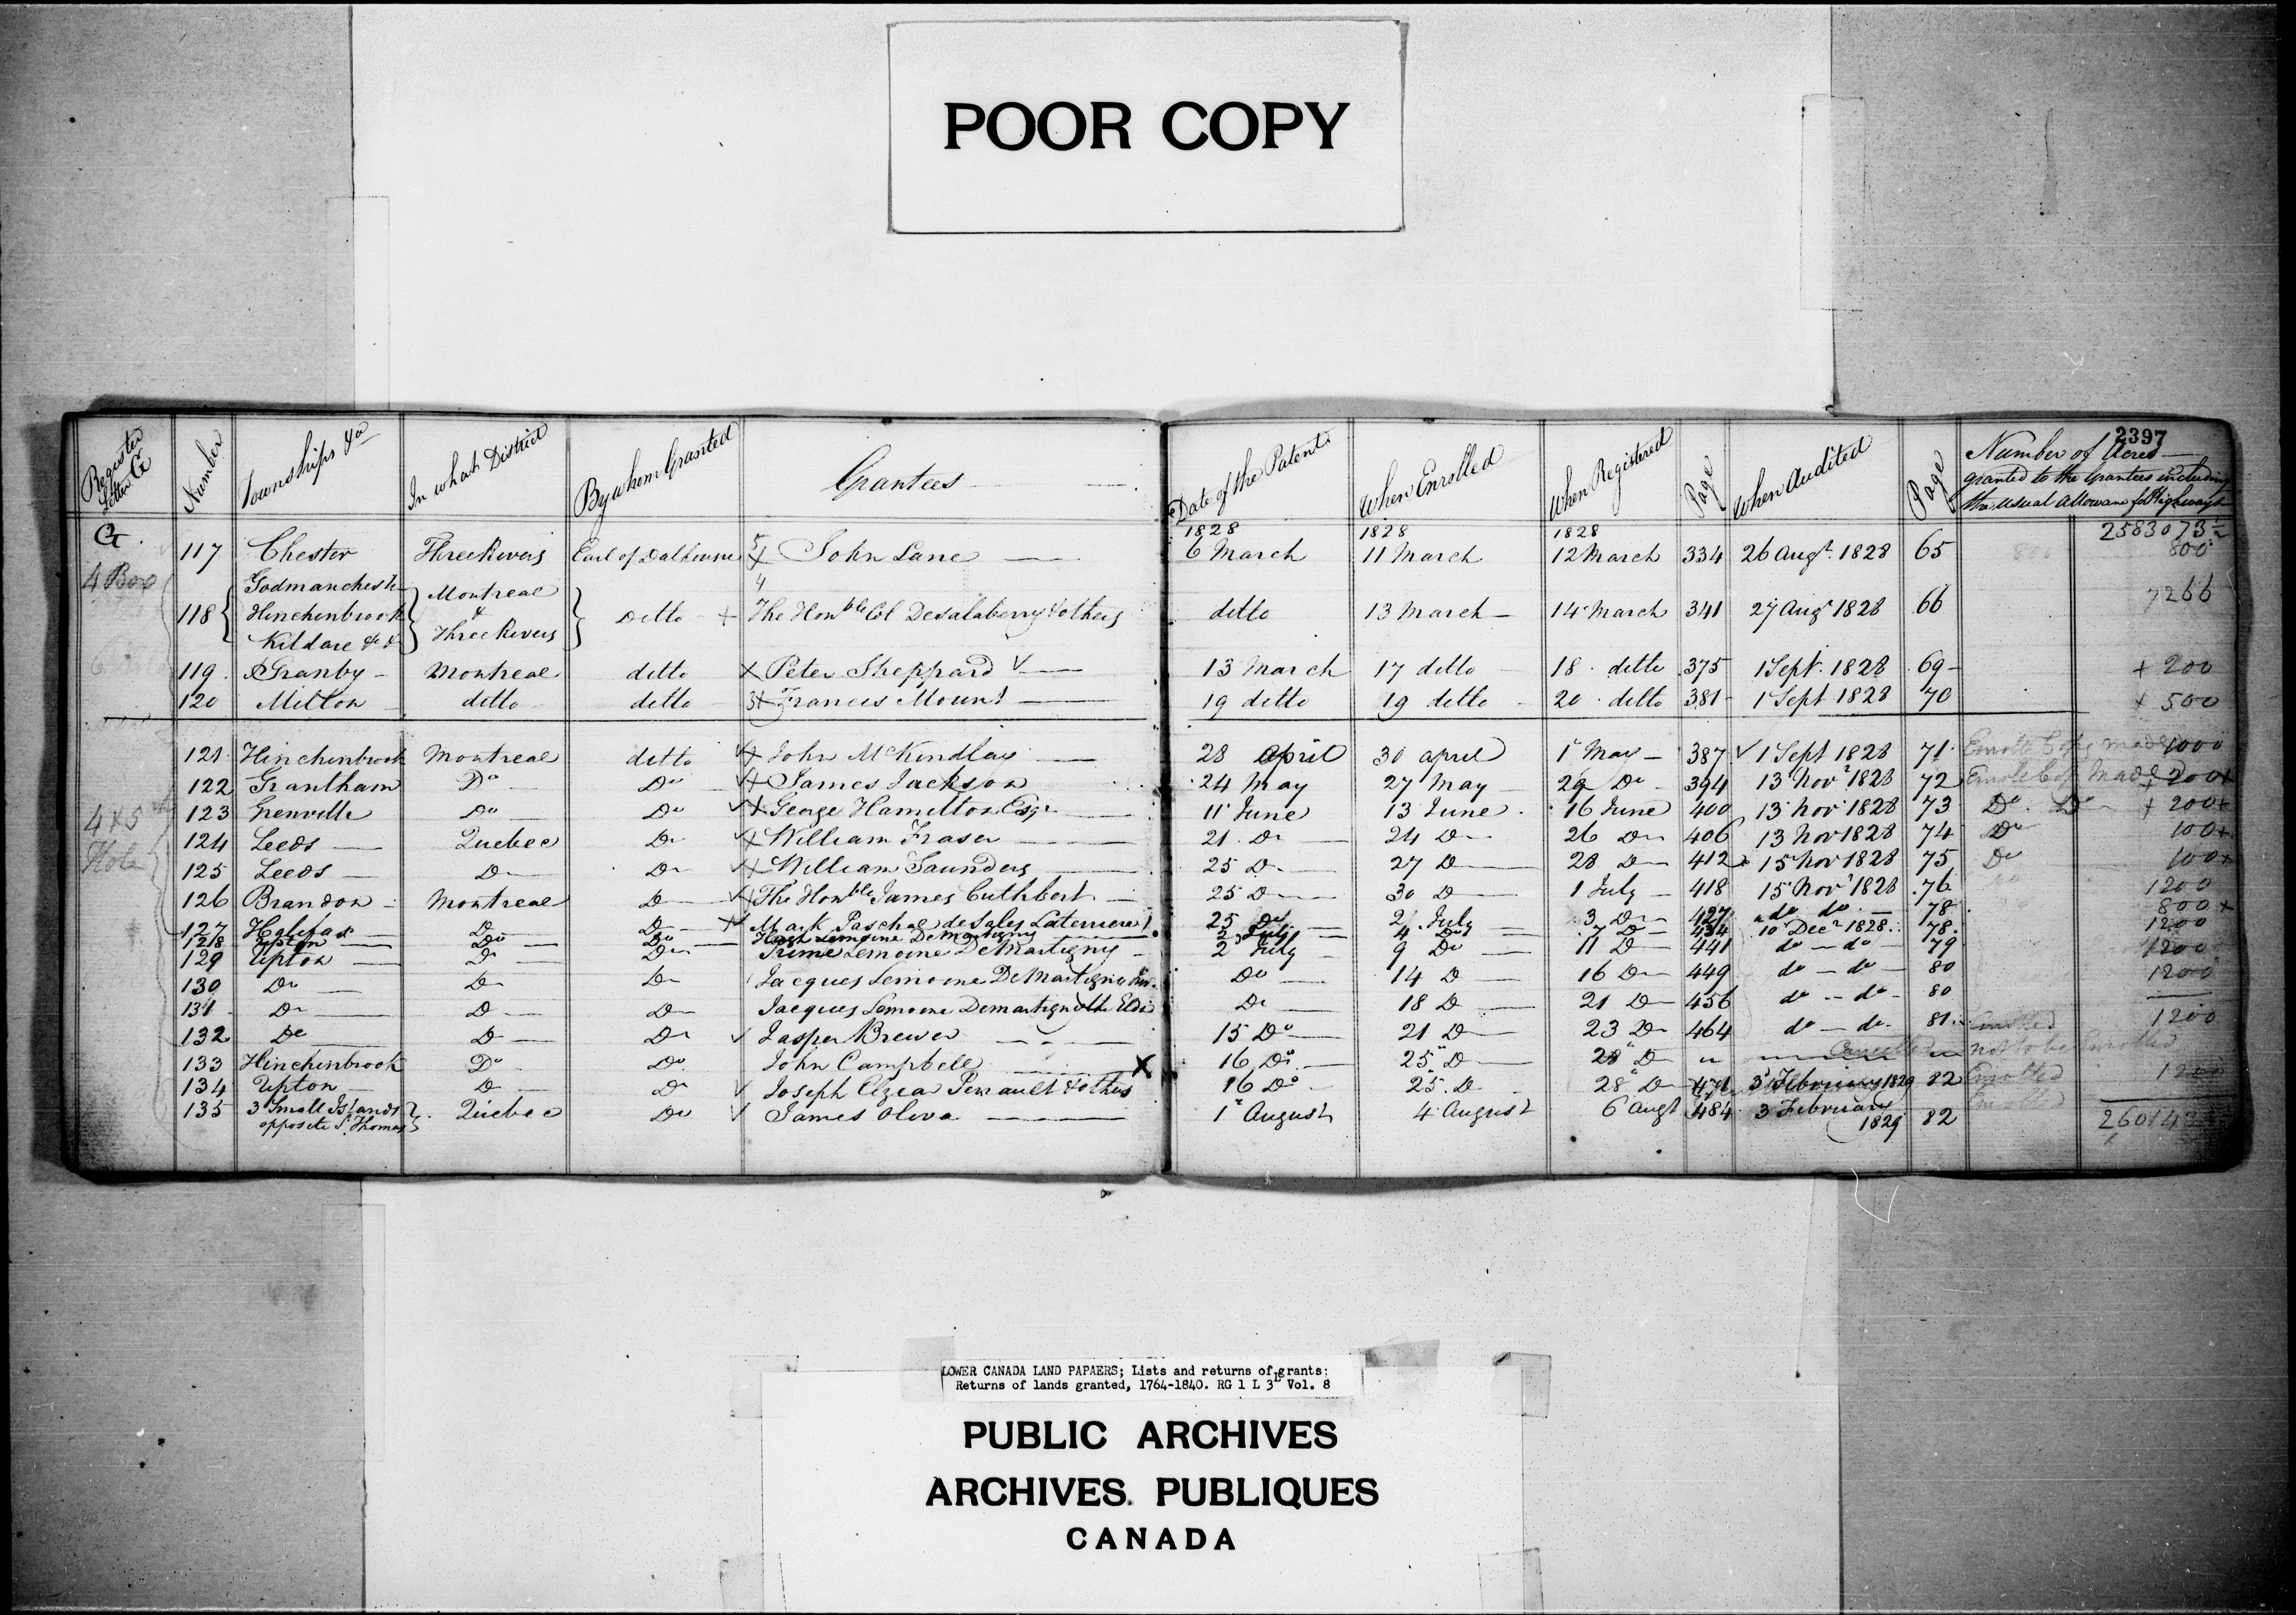 POOR COPY
2397
Register Letter G | Number | Townships &a | In what District | By whom Granted | Grantees | Date of the Patent | When Enrolled | When Registered | Page | When Audited | Page | Number of Acres granted to the Grantees including the usual Allowance for Highways
G. 1828 1828 1828 2583073½
117 Chester Three Rivers Earl of Dalhousie 5 x John Lane 6 March 11 March 12 March 334 26 Augt. 1828 65 800
4 Box
118 { Godmanchester Hinchinbrook Kildare &c } Montreal & Three Rivers } Ditto + 4 The Honble Col Desalaberry & others ditto 13 March 14 March 341 27 Augt 1828 66 7266
119 Granby Montreal ditto x Peter Sheppard √ 13 March 17 ditto 18 ditto 375 1 Sept. 1828 69 + 200
120 Milton ditto ditto 3x Francis Mount 19 ditto 19 ditto 20 ditto 381 1 Sept 1828 70 + 500
121 Hinchinbrook Montreal ditto √x John McKindlay 28 April 30 April 1 May 387 √ 1 Sept 1828 71 1000
122 Grantham Do Do √x James Jackson 24 May 27 May 29 Do 394 13 Novr 1828 72 + 200+
4 & 5
123 Grenville Do Do √x George Hamilton Esqr 11 June 13 June 16 June 400 13 Novr 1828 73 Do Do + 200+
124 Leeds Quebec Do √x William Fraser 21 Do 24 Do 26 Do 406 13 Novr 1828 74 Do 100+
125 Leeds Do Do √x William Saunders 25 Do 27 Do 28 Do 412 15 Novr 1828 75 Do 100+
126 Brandon Montreal Do √x The Honble James Cuthbert 25 Do 30 Do 1 July 418 15 Novr 1828 76 1200
127 Halifax Do Do x Mark Paschal de Sales Laterriere 25 Do 2 July 3 Do 427 do do 78 800 +
128 Upton Do Do Hugh Lemoine Demartigny 2 July 4 Do 7 Do 434 10 Decr 1828 78 1200
129 Upton Do Do Prime Lemoine DeMartigny 2 July 9 Do 11 Do 441 do - do 79 1200
130 Do Do Do Jacques Lemoine DeMartigny Jun. Do 14 Do 16 Do 449 do - do 80 1200
131 Do Do Do Jacques Lemoine Demartigny the Elder Do 18 Do 21 Do 456 do - do 80
132 Do Do Do √ Jasper Brewer 15 Do 21 Do 23 Do 464 do - do 81 Enrolled 1200
133 Hinchinbrook Do Do John Campbell X 16 Do 25 Do 28 Do " Cancelled " not to be Enrolled
134 Upton Do Do √ Joseph Elzear Perrault & others 16 Do 25 Do 28 Do 471 3 February 1829 82 Enrolled 1200
135 3 Small Islands opposite St. Thomas } Quebec Do √ James Oliva 1 August 4 August 6 Augt 484 3 February 1829 82 Enrolled
LOWER CANADA LAND PAPAERS; Lists and returns of grants:
Returns of lands granted, 1764-1840. RG 1 L 3L Vol. 8
PUBLIC ARCHIVES
ARCHIVES PUBLIQUES
CANADA